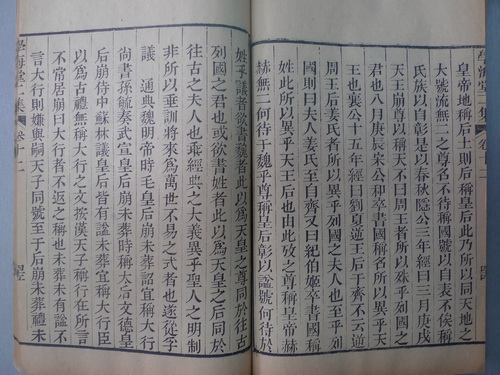 學海堂二集
卷十二
皇帝地稱后土則后稱皇后此乃所以同天地之
大號流無二之尊名不待稱國號以自表不俟稱
氏族以自彰是以春秋隱公三年經曰三月庚戌
天王崩尊以稱天不曰周王者所以殊乎列國之
君也八月庚辰宋公和卒書國稱名所以異乎天
王也襄公十五年經曰劉夏逆王后于齊不云逆
周王后姜氏者所以異乎列國之夫人也至乎列
國則曰夫人姜氏至自齊又曰紀伯姬卒書國稱
姓此所以異乎天王后也由此攷之尊稱皇帝赫
赫無二何待于魏乎尊稱皇后彰以諡號何待於
姓乎議者欲書魏者此以爲天皇之尊同於往古
列國之君也或欲書姓者此以爲天皇之后同於
往古之夫人也乖經典之大義異乎聖人之明制
非所以垂訓將來爲萬世不易之式者也遂從孚
議 通典魏明帝時毛皇后崩未葬詔宜稱大行
尚書孫毓奏武宣皇后崩未葬時稱太后文德皇
后崩侍中蘇林議皇后皆有諡未葬宜稱大行臣
以爲古禮無稱大行之文按漢天子稱行在所言
不常居崩曰大行者不返之稱也未葬未有諡不
言大行則嫌與嗣天子同號至于后崩未葬禮未
學海堂二集
卷十二